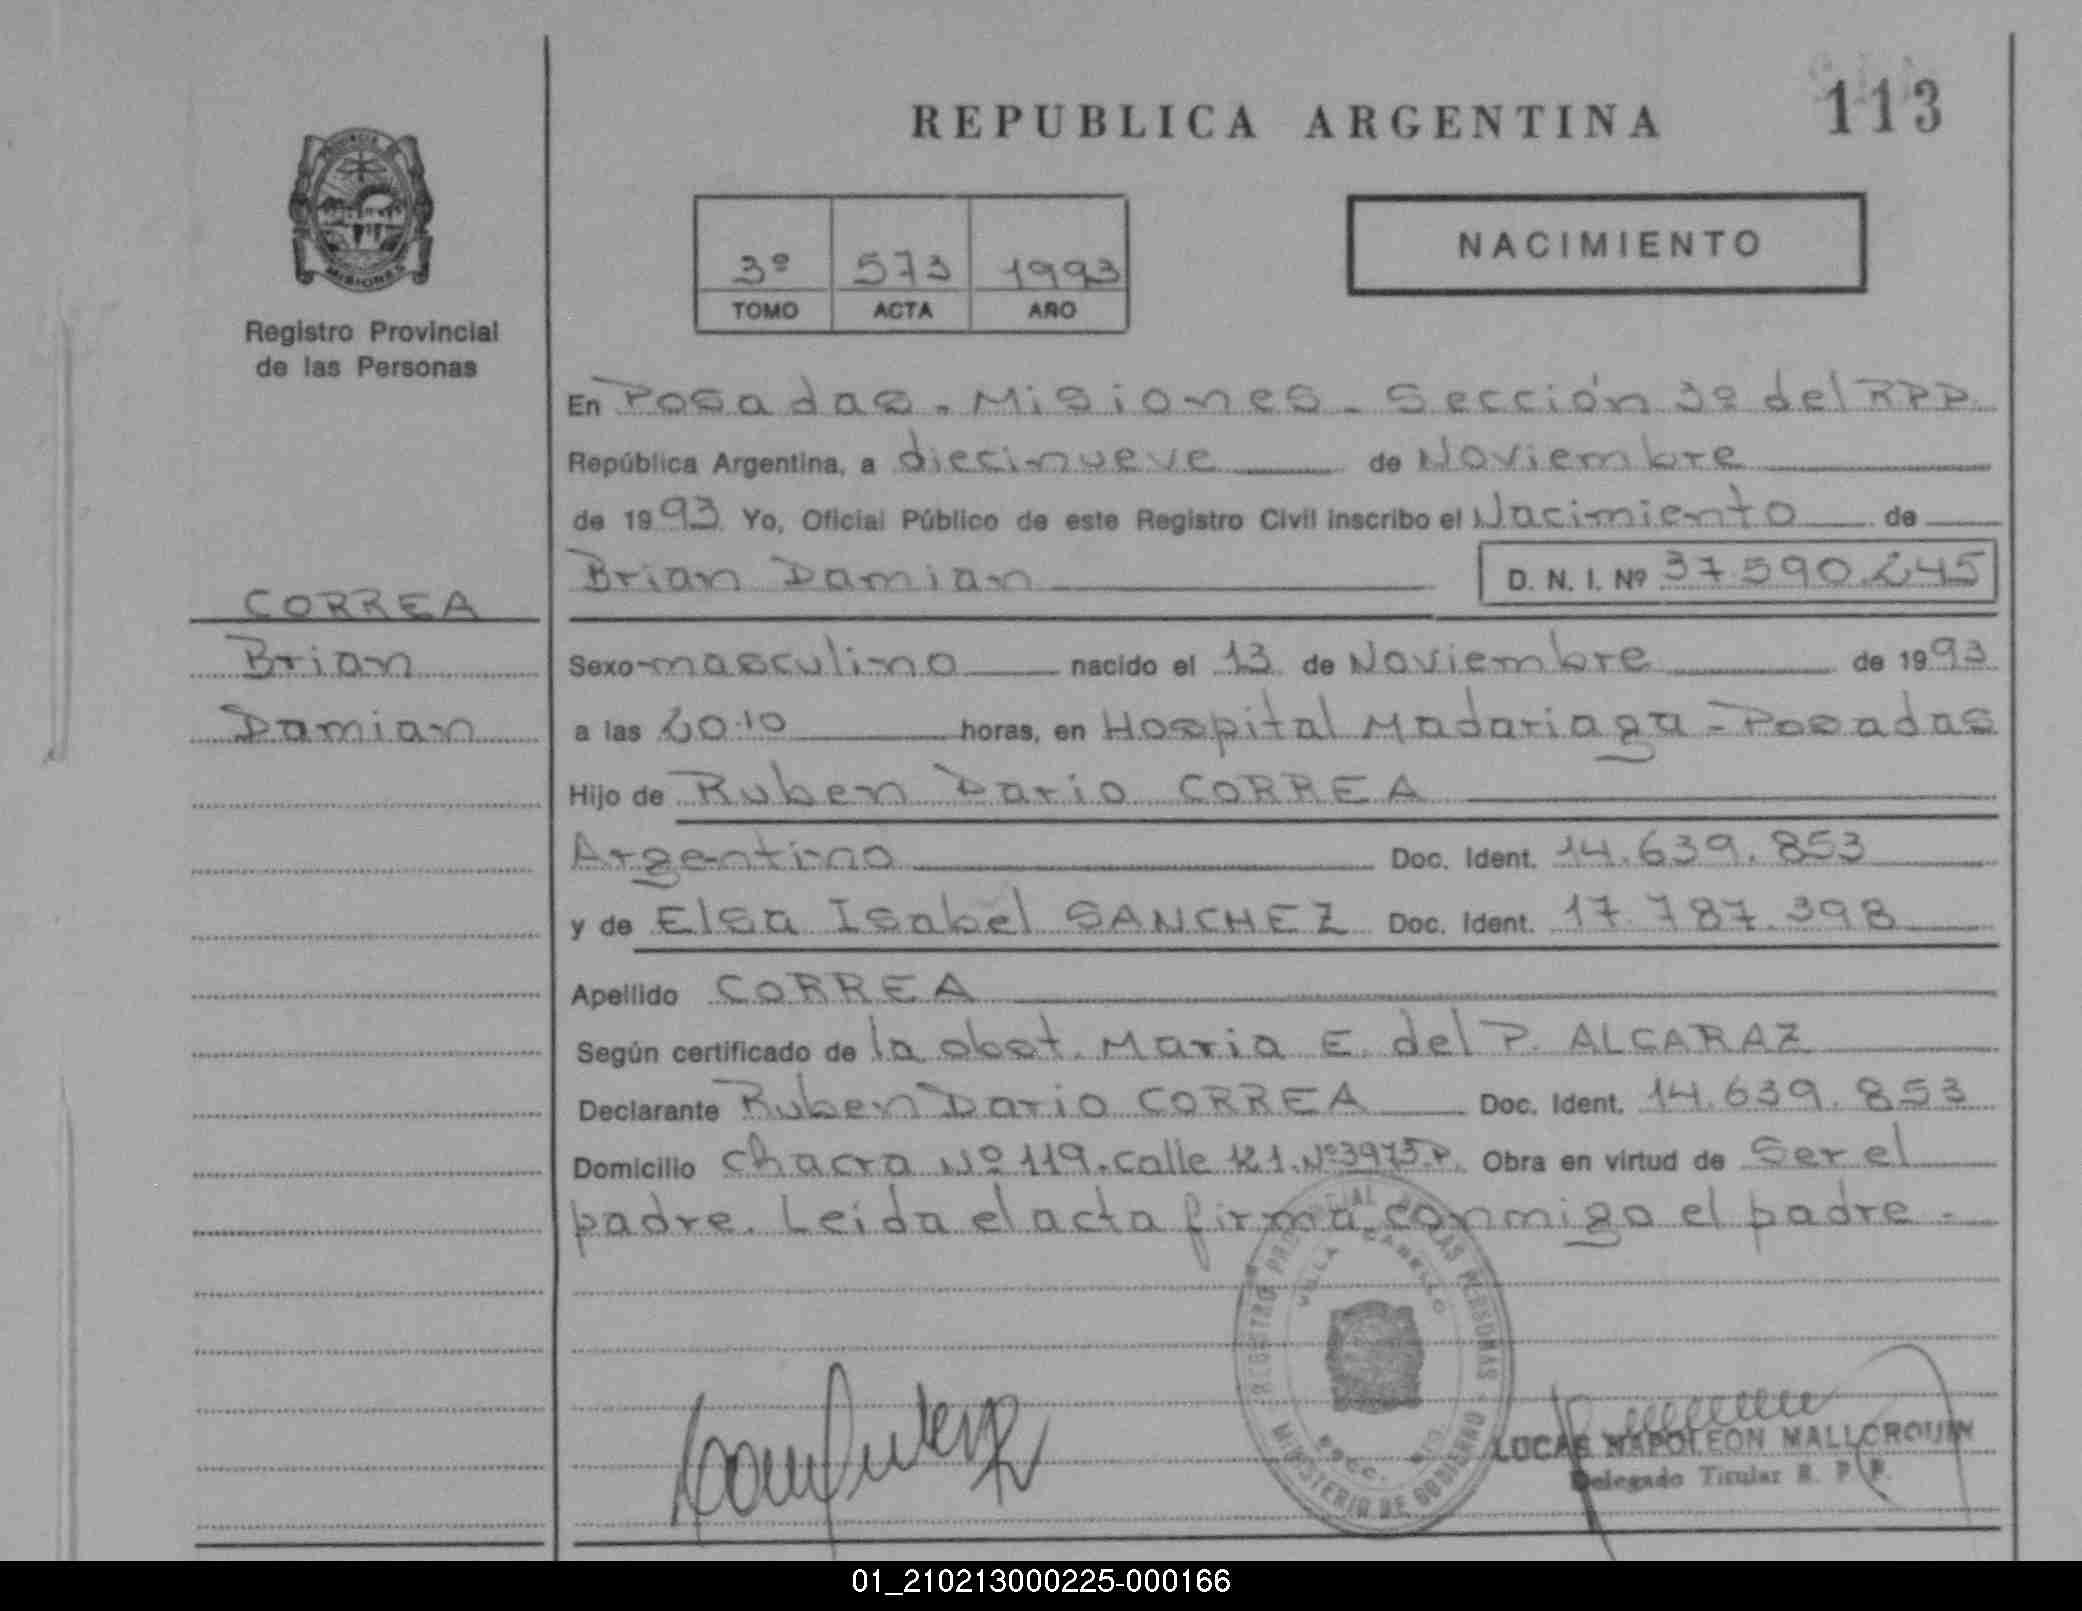 REPUBLICA ARGENTINA
113
MISIONES
Registro Provincial
de las Personas
3º 573 1993
TOMO ACTA AÑO
NACIMIENTO
En Posadas - Misiones - Sección 3º del RPP.
República Argentina, a diecinueve de Noviembre
de 1993 Yo, Oficial Público de este Registro Civil inscribo el Nacimiento de
Brian Damian D. N. I. Nº 37.590.245
CORREA
Brian
Damian
Sexo masculino nacido el 13 de Noviembre de 1993
a las 20.10 horas, en Hospital Madariaga - Posadas
Hijo de Ruben Dario CORREA
Argentino Doc. Ident. 14.639.853
y de Elsa Isabel SANCHEZ Doc. Ident. 17.787.398
Apellido CORREA
Según certificado de la obst. Maria E. del P. ALCARAZ
Declarante Ruben Dario CORREA Doc. Ident. 14.639.853
Domicilio Chacra Nº 119. calle K1. Nº 3975.P. Obra en virtud de Ser el
padre. Leida el acta firma conmigo el padre -
REGISTRO PROVINCIAL DE LAS PERSONAS
VILLA CABELLO
SECC.
MINISTERIO DE GOBIERNO
LUCAS NAPOLEON MALLORQUIN
Delegado Titular R. P. P.
01_210213000225-000166